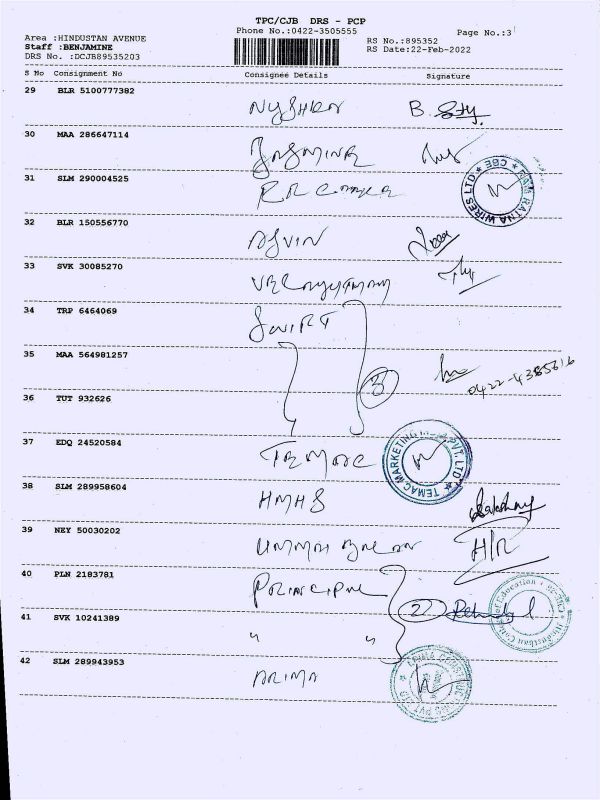 TPC/CJB DRS - PCP
Phone No.:0422-3505555
Page No.:3
Area :HINDUSTAN AVENUE
Staff :BENJAMINE
DRS No. :DCJB89535203
RS No.:895352
RS Date:22-Feb-2022
S No Consignment No Consignee Details Signature
29 BLR 5100777382
B.
30 MAA 286647114
JASMINE
31 SLM 290004525
RR
RAM RATNA WIRES LTD ★ CBE ★
32 BLR 150556770
ASVIN
33 SVK 30085270
VELAYUTHAM
34 TRP 6464069
SWIFT
35 MAA 564981257
3
0422-4385616
36 TUT 932626
37 EDQ 24520584
TEMAC
TEMAC MARKETING PVT. LTD ★
38 SLM 289958604
HMHS
39 NEY 50030202
H/R
40 PLN 2183781
PRINCIPAL
2
41 SVK 10241389
" "
Hindustan College of Education
42 SLM 289943953
ARIMA